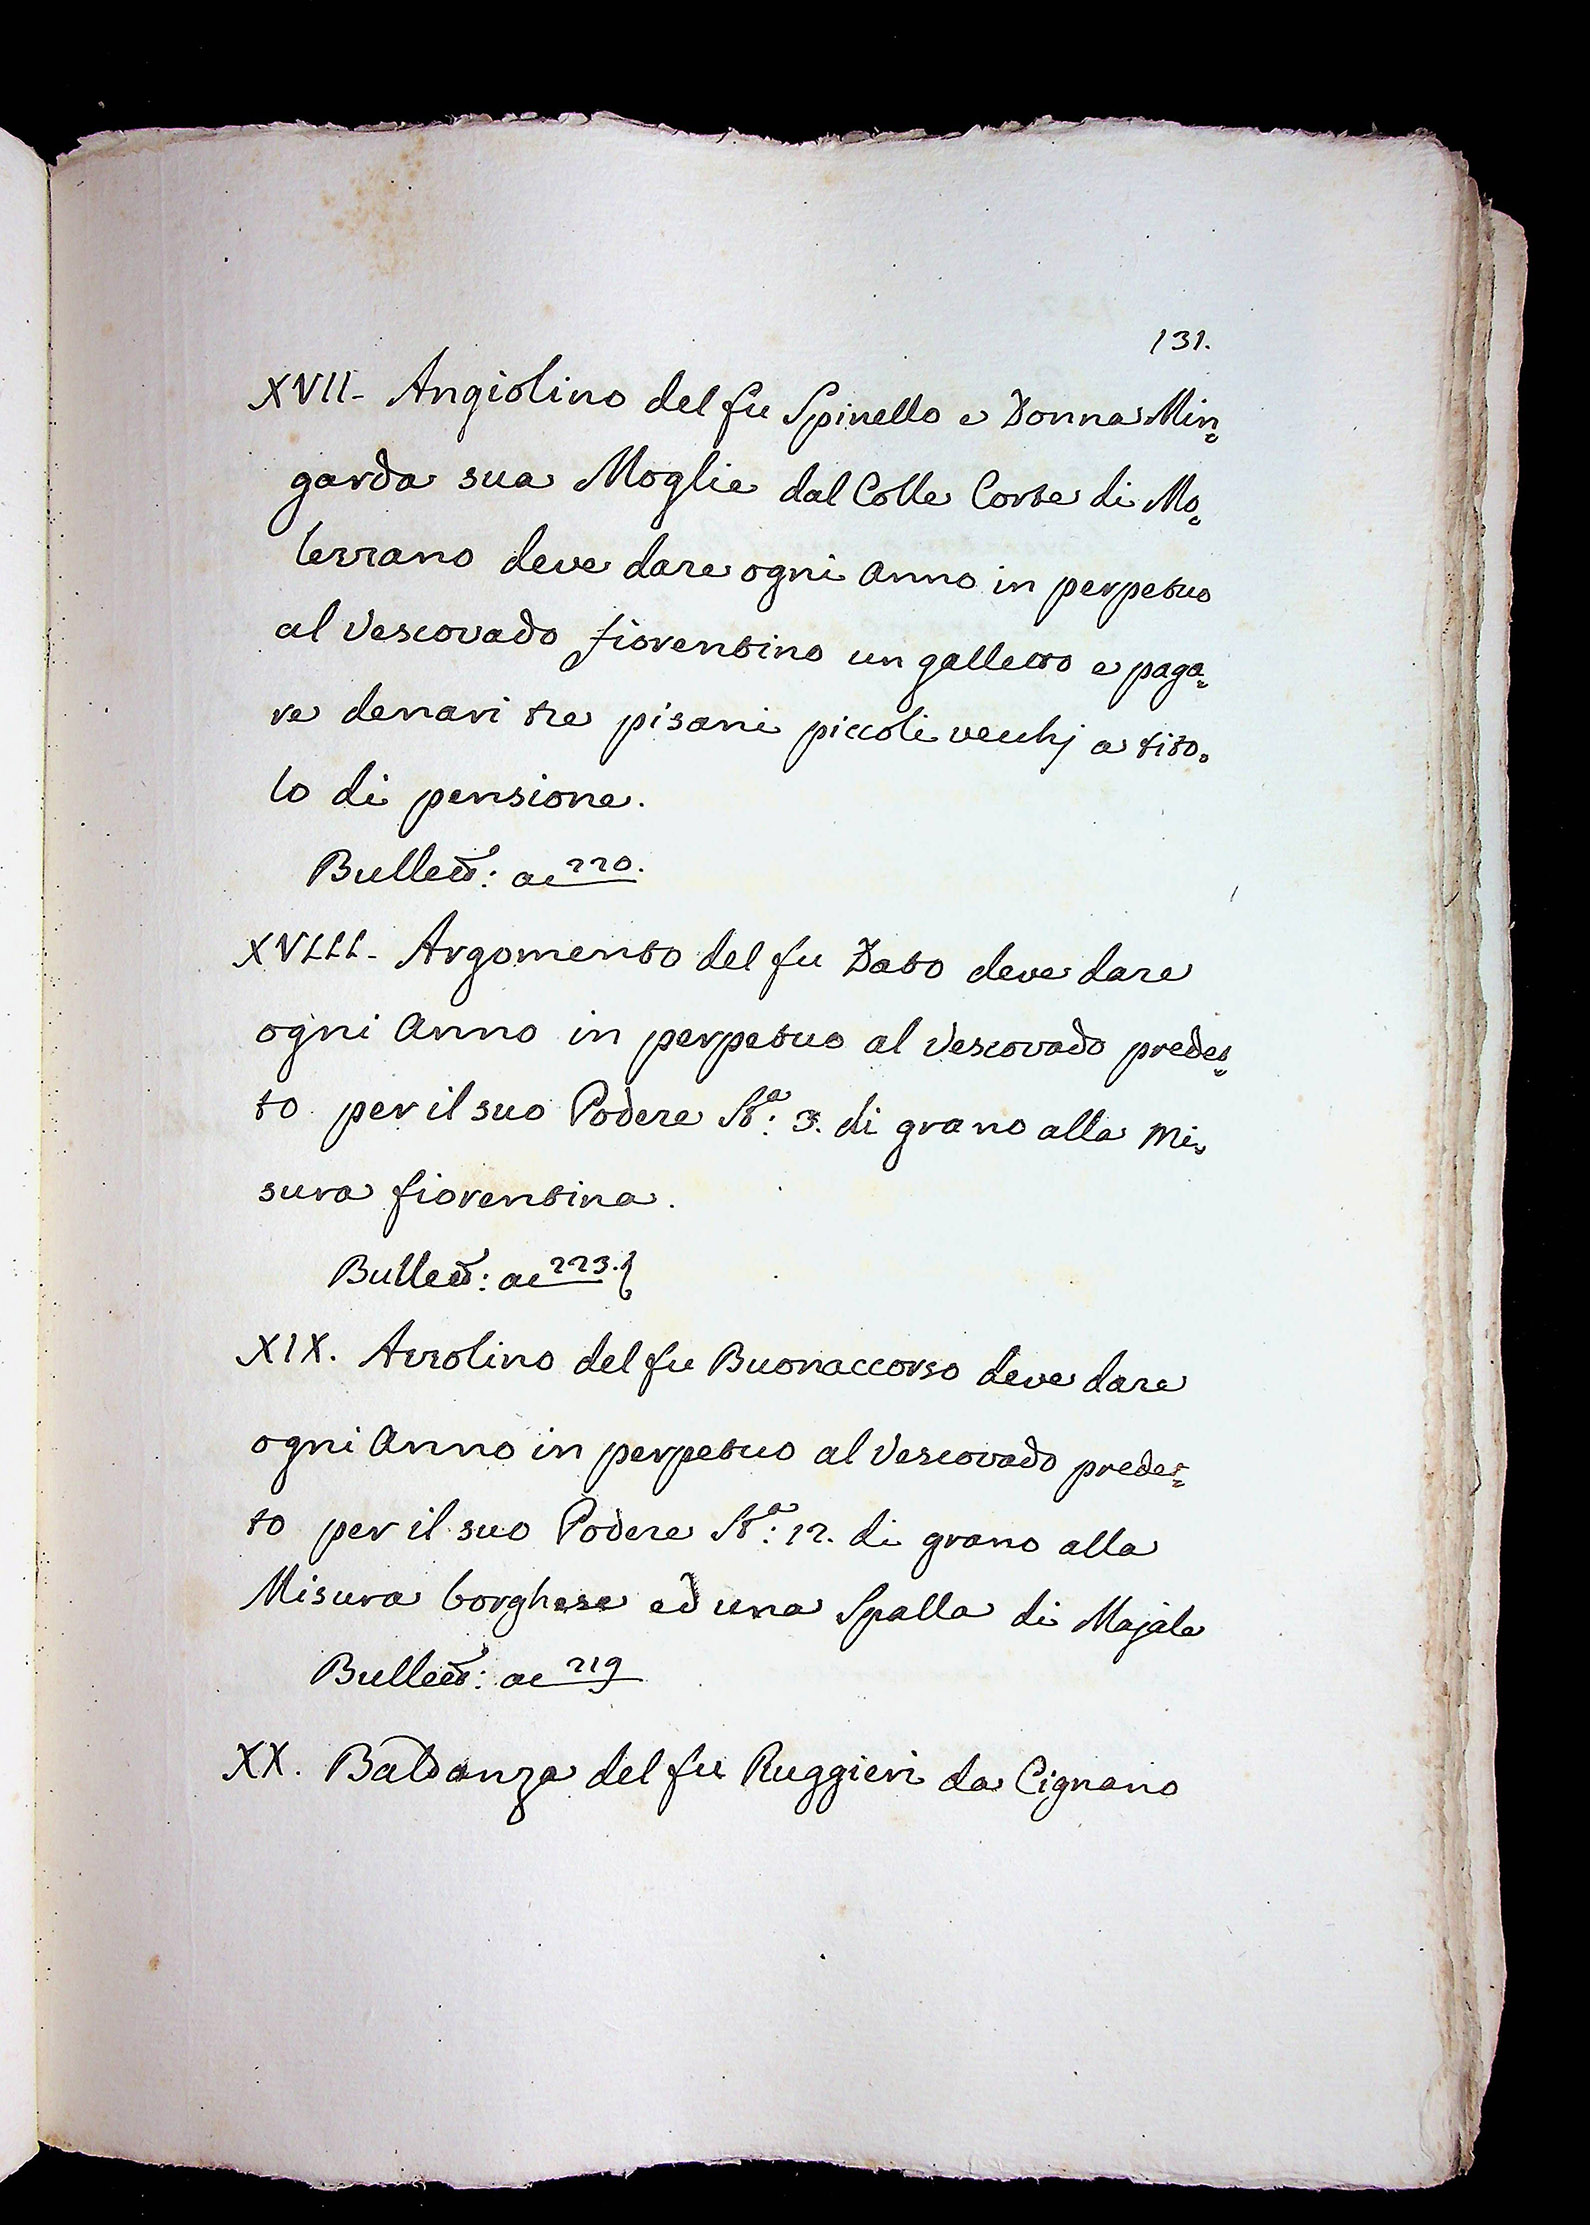 131.
XVII- Angiolino del fu Spinello e Donna Min=
garda sua Moglie dal Colle Corte di Mo=
lezzano deve dare ogni Anno in perpetuo
al Vescovado fiorentino un galletto e paga=
re denari tre pisani piccoli vecchj a tito=
lo di pensione.
Bullett: ac 220.
XVIII- Argomento del fu Dato deve dare
ogni Anno in perpetuo al Vescovado predet=
to per il suo Podere Sta: 3. di grano alla Mi=
sura fiorentina.
Bullett: ac 223.
XIX. Azzolino del fu Buonaccorso deve dare
ogni Anno in perpetuo al Vescovado predet=
to per il suo Podere Sta: 12. di grano alla
Misura borghese ed una Spalla di Majale
Bullett: ac 219
XX. Baldanza del fu Ruggieri da Cignano